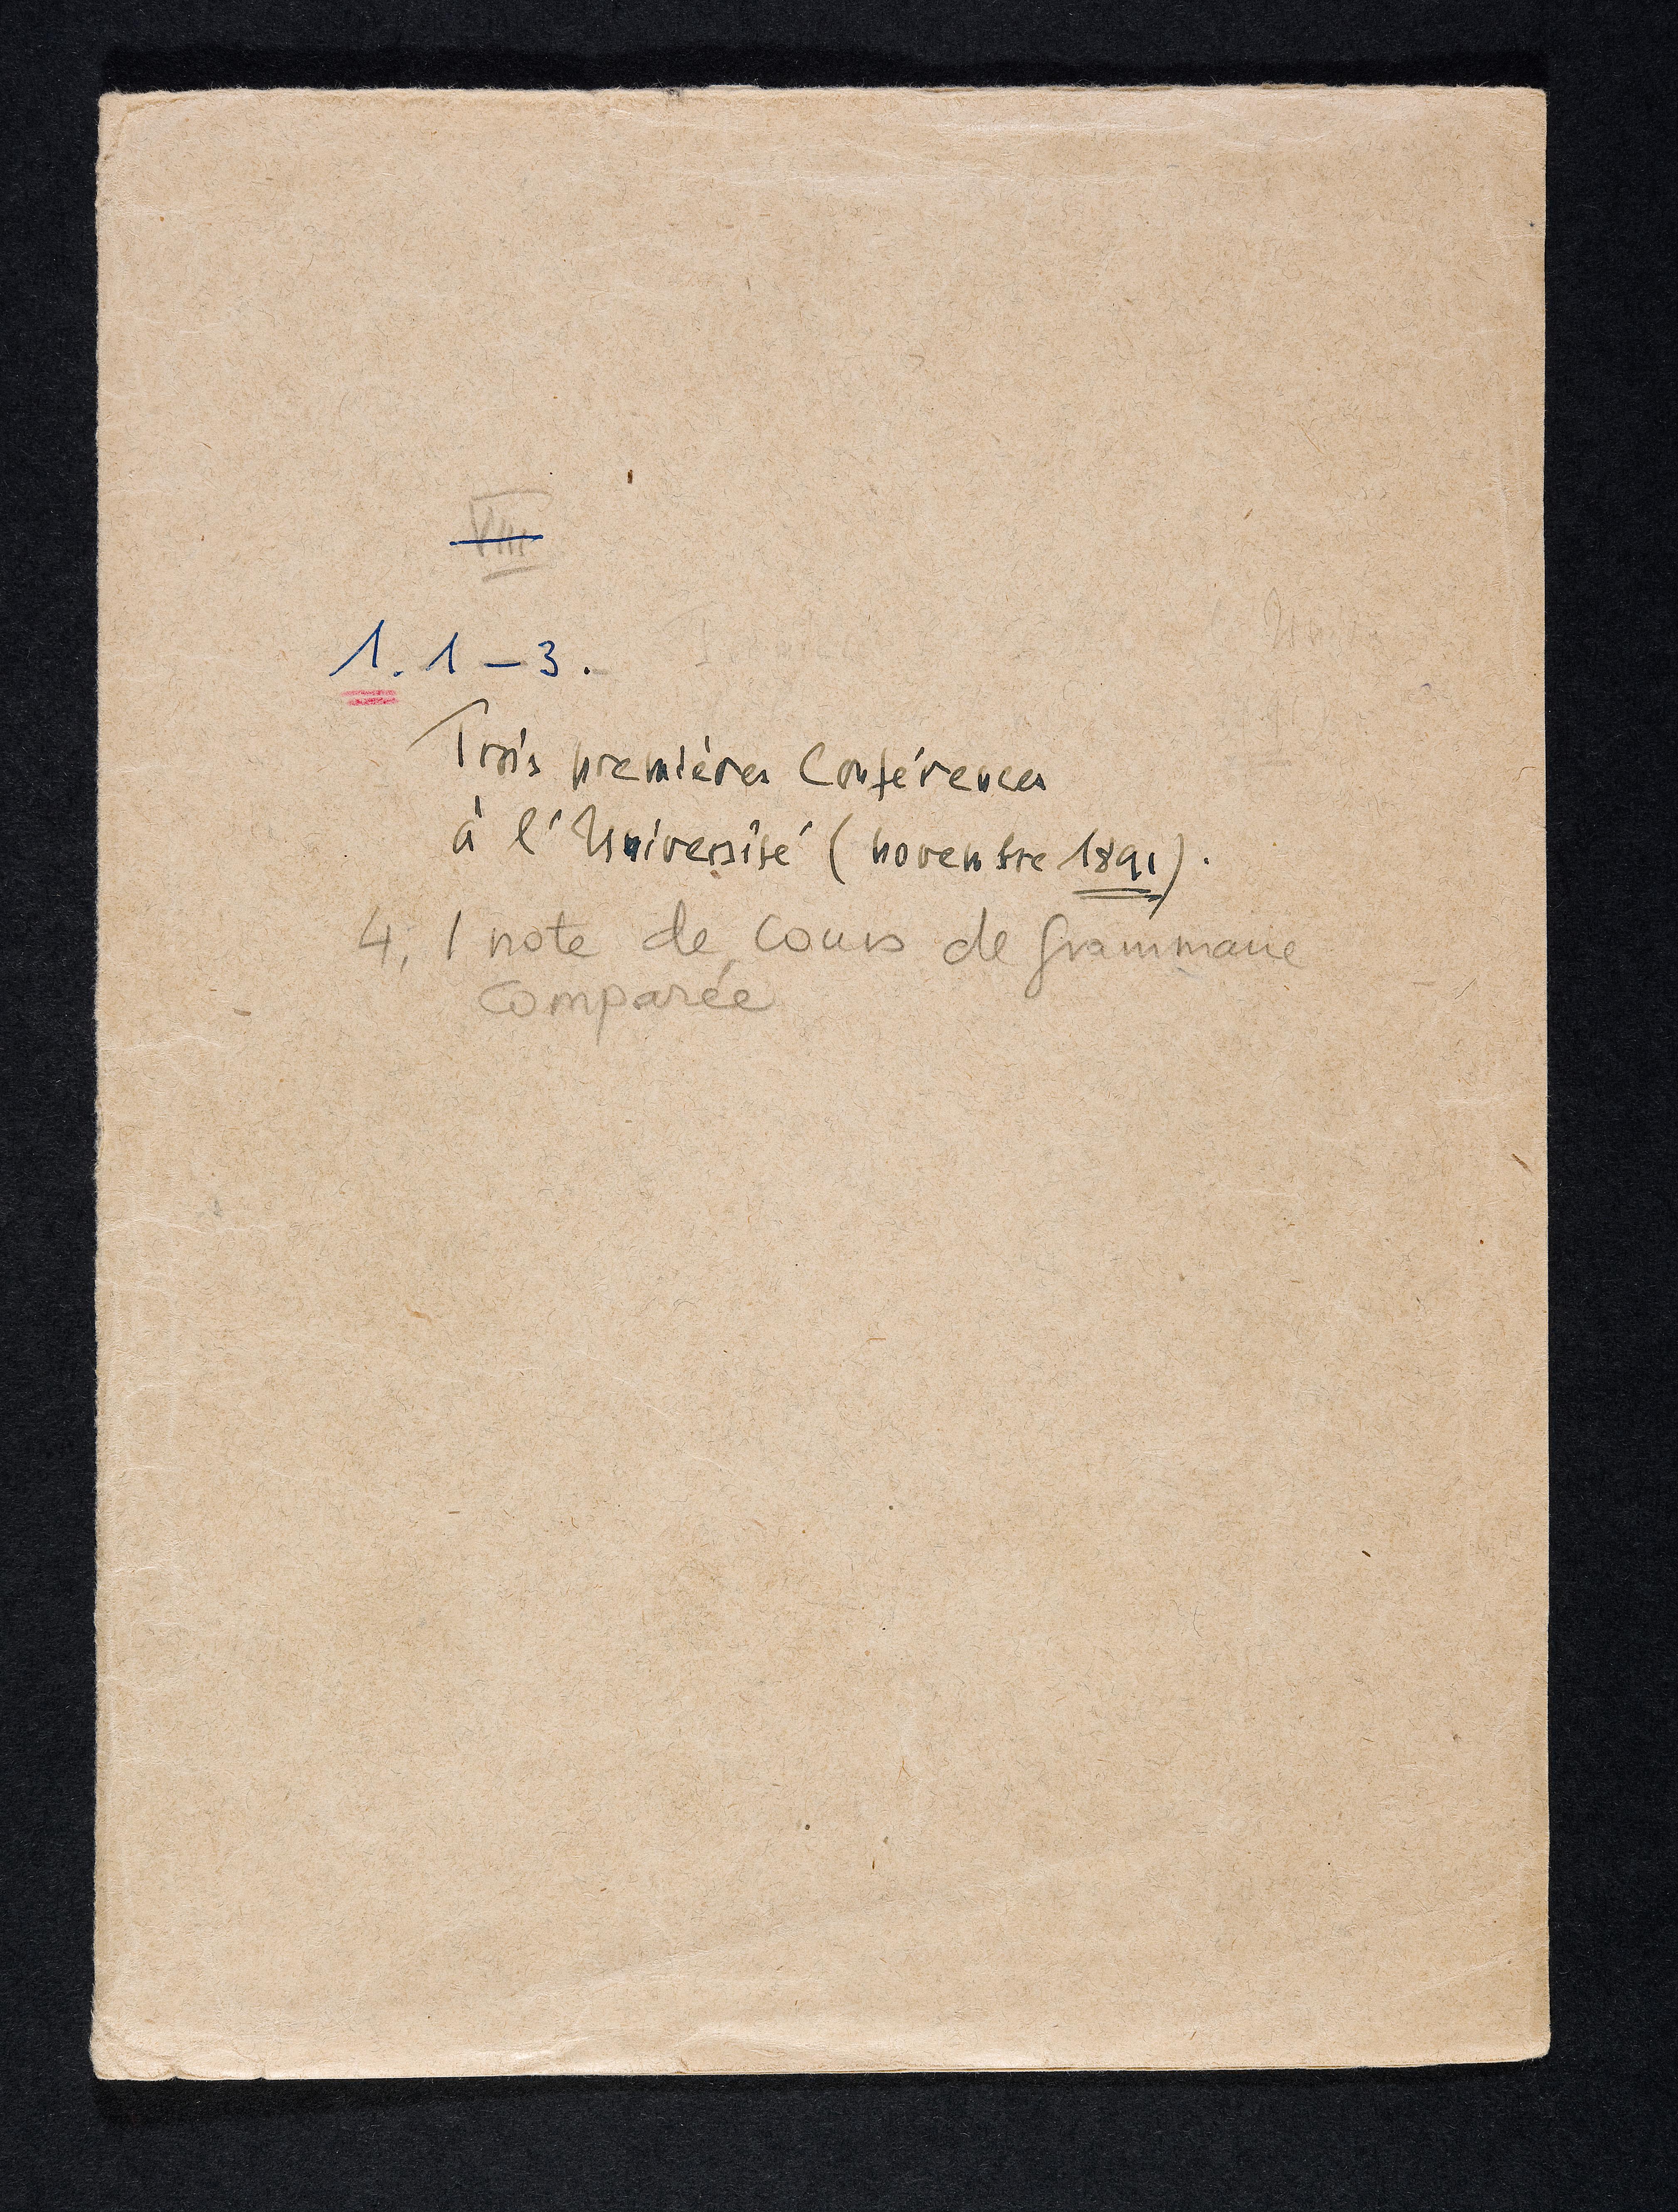 VIII
1. 1 – 3.
Trois premières Conférences
à l'Université (novembre 1891).
4, 1 note de cours de grammaire
comparée